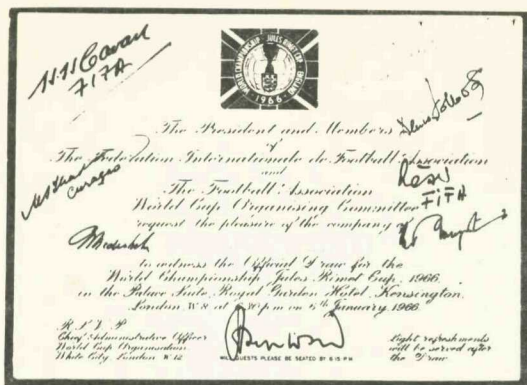 H H Cavan
FIFA
WORLD CHAMPIONSHIP JULES RIMET CUP ENGLAND
1966
The President and Members
of
The Federation Internationale de Football Association
and
Curaçao
The Football Association
World Cup Organising Committee
FIFA
request the pleasure of the company of
to witness the Official Draw for the
World Championship Jules Rimet Cup, 1966
in the Palace Suite, Royal Garden Hotel, Kensington,
London W 8 at p.m on January 1966
R.S.V.P
Chief Administrative Officer
World Cup Organisation
White City London W 12
WILL GUESTS PLEASE BE SEATED BY 6 15 PM
Light refreshments
will be served after
the Draw